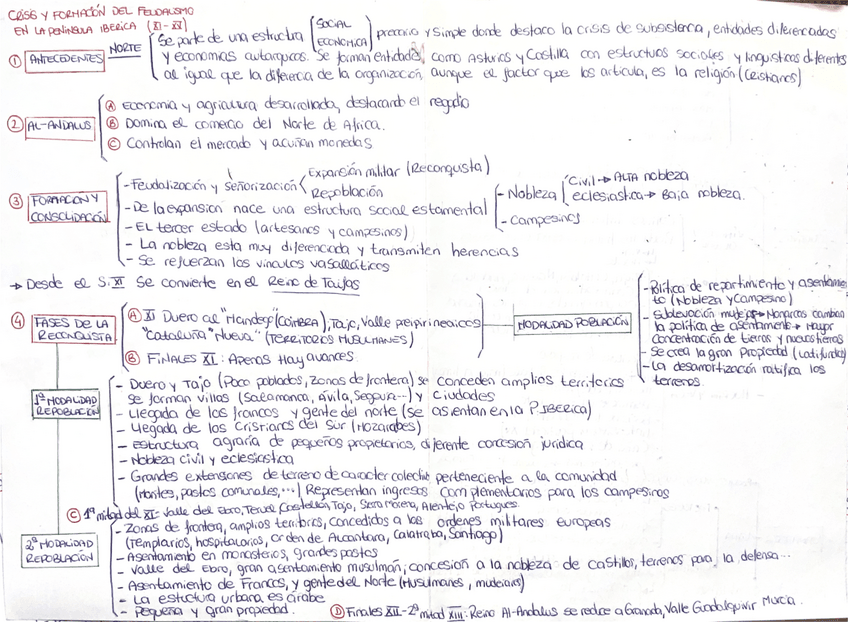 CRISIS Y FORMACIÓN DEL FEUDALISMO
EN LA PENÍNSULA IBERICA (XI - XV)
① ANTECEDENTES NORTE
Se parte de una estructura SOCIAL ECONOMICA precario y simple donde destaca la crisis de subsistencia, entidades diferenciadas
y economias autarquicas. Se forman entidades, como Asturias y Castilla con estructuras sociales y linguisticas diferentes
al igual que la diferencia de la organización, aunque el factor que los articula, es la religión (Cristianos)
② AL-ANDALUS
Ⓐ Economia y agricultura desarrollada, destacando el regadio
Ⓑ Domina el comercio del Norte de Africa.
Ⓒ Controlan el mercado y acuñan monedas
③ FORMACIÓN Y CONSOLIDACIÓN
- Feudalización y señorización
Expansión militar (Reconquista)
Repoblación
- De la expansion nace una estructura social estamental
- Nobleza
Civil → ALTA nobleza
eclesiastica → Baja nobleza.
- Campesinos
- EL tercer estado (artesanos y campesinos)
- La nobleza esta muy diferenciada y transmiten herencias
- Se refuerzan los vinculos vasalláticos
→ Desde el S. XI se convierte en el Reino de Taifas
④ FASES DE LA RECONQUISTA
Ⓐ XI Duero al "Mandego" (COIMBRA), Tajo, Valle prepirineaicos
"Cataluña" Nueva" (TERRITORIOS MUSULMANES)
Ⓑ FINALES XI: Apenas Hay avances
MODALIDAD POBLACIÓN
- Política de repartimiento y asentamiento (Nobleza y Campesino)
- sublevación mudejar → Monarcas cambian
la política de asentamiento → Mayor
concentración de tierras y nuevas tierras
- Se crea la gran Propiedad (Latifundios)
- La desamortización ratifica los
terrenos.
1ª MODALIDAD REPOBLACIÓN
- Duero y Tajo (Poco poblados, zonas de frontera) se conceden amplios territorios
se forman villas (Salamanca, Ávila, Segovia...) y ciudades
- Llegada de los francos y gente del norte (se asientan en la P. IBERICA)
- Llegada de los Cristianos del Sur (Mozarabes)
- Estructura agraria de pequeños propietarios, diferente concesión juridica
- Nobleza civil y eclesiastica
- Grandes extensiones de terreno de caracter colectivo perteneciente a la comunidad
(Montes, pastos comunales,...) Representan ingresos complementarios para los campesinos
Ⓒ 1ª mitad del XI: Valle del Ebro, Teruel, Castellón, Tajo, Sierra Morena, Alentejo Portugues.
2ª MODALIDAD REPOBLACIÓN
- Zonas de frontera, amplios territorios, concedidos a las ordenes militares europeas
(Templarios, hospitalarios, orden de Alcantara, Calatraba, Santiago)
- Asentamiento en monasterios, grandes pastos
- Valle del Ebro, gran asentamiento musulmán; concesión a la nobleza de castillos, terrenos para la defensa...
- Asentamiento de Francos, y gente del Norte (Musulmanes, mudejares)
- La estructura urbana es árabe
- Pequeña y gran propiedad.
Ⓓ Finales XII - 2ª mitad XIII: Reino Al-Andalus se reduce a Granada, Valle Guadalquivir Murcia.